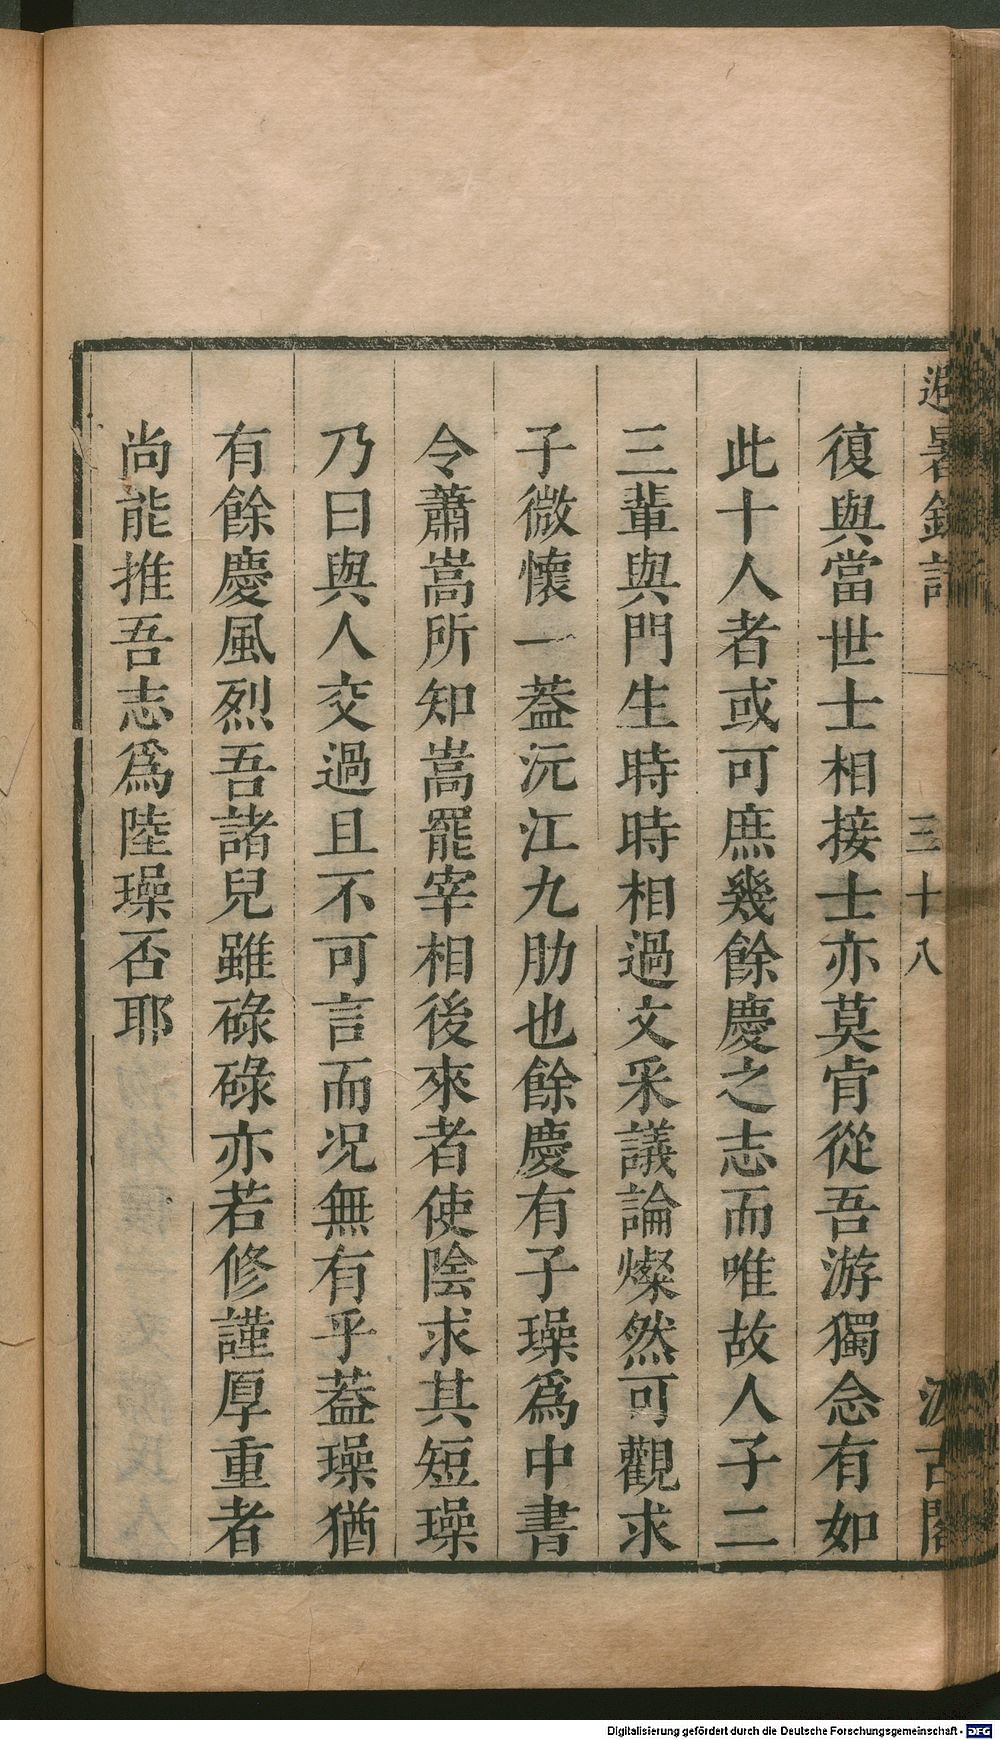 避暑錄話　三十八　汲古閣
復與當世士相接士亦莫肯從吾游獨念有如
此十人者或可庶幾餘慶之志而唯故人子二
三輩與門生時時相過文采議論燦然可觀求
子微懷一葢沅江九肋也餘慶有子璪爲中書
令蕭嵩所知嵩罷宰相後來者使陰求其短璪
乃曰與人交過且不可言而況無有乎葢璪猶
有餘慶風烈吾諸兒雖碌碌亦若修謹厚重者
尚能推吾志爲陸璪否耶
Digitalisierung gefördert durch die Deutsche Forschungsgemeinschaft - DFG